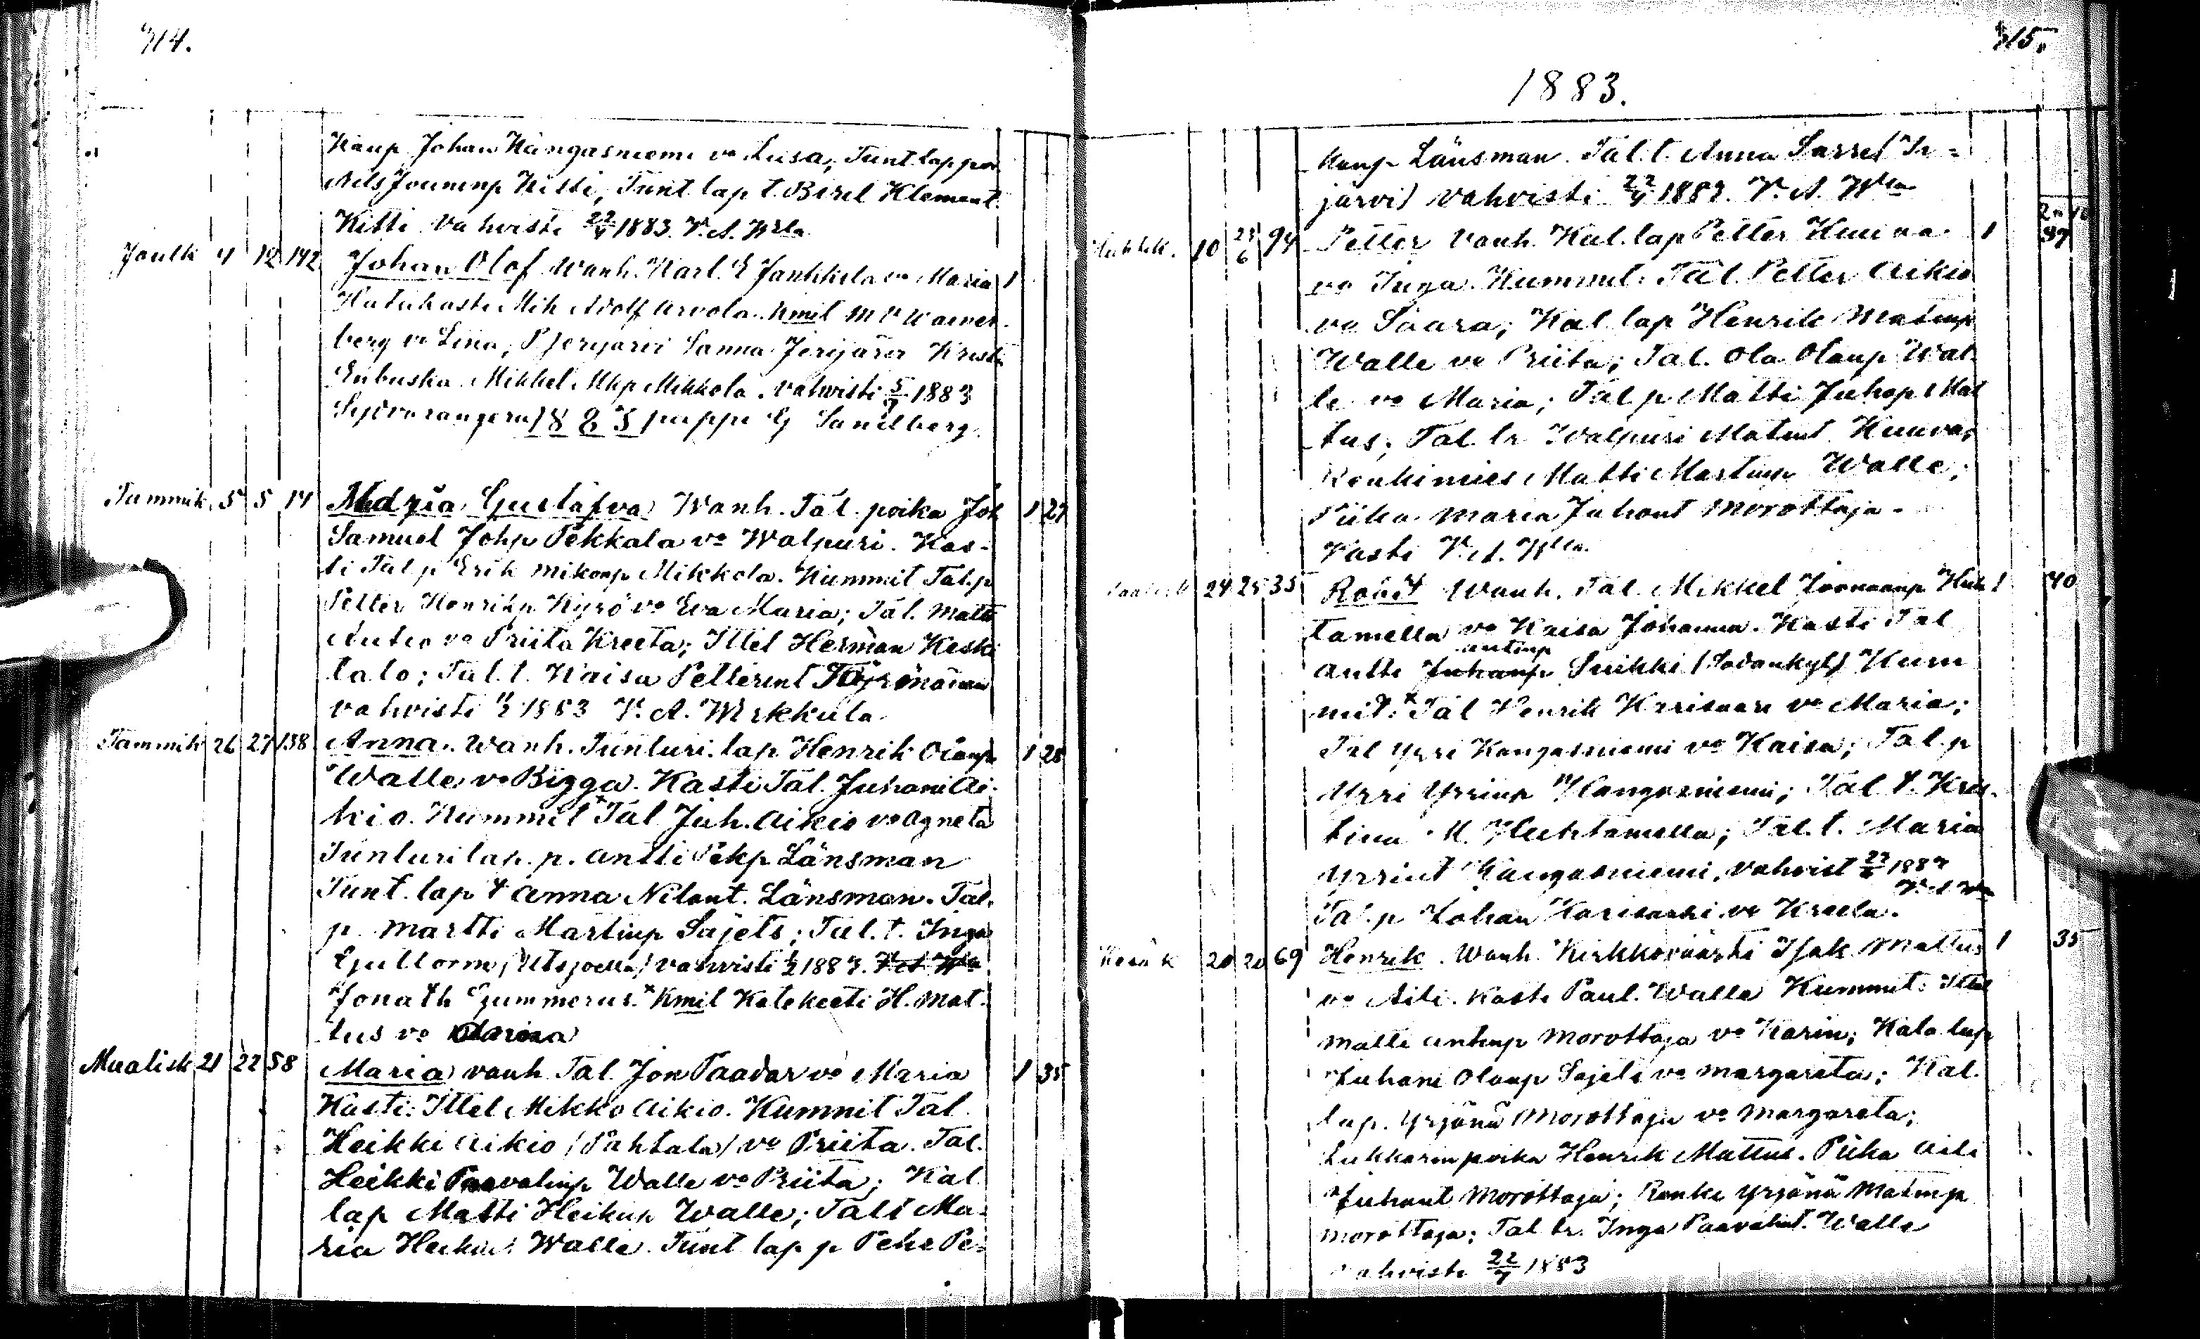 314.
Kaup Johan Kangasniemi vo Liisa, Tunt lap po
Nils Jouninp Kitti, Tunt lap t. Birel Klement
Kitti vahvisti 22/4 1883. V. A. Wrla
Joulk 4 12 142 Johan Olof Wanh. Karl. E Jankkila vo Maria 1
Hätäkaste Mik Adolf Arvola. Kmit M V Waenerberg
berg vo Lina, P Jerijärvi Sanna Jerijärvi Kristi
Enbuska Mikkel Mkp Mikkola. vahvisti 5/7 1883
Sydvarangern 1883 pappi G Sandberg.
Tammik. 5 5 14 Maria Gustafva Wanh. Tal. poika Joh 1 27
Samuel Johp Pekkala vo Walpuri. Kas-
ti Tal p Erik Mikonp Mikkola. Kummit Tal.p
Petter Henrikp Kyrö vo Eva Maria; Tal. Matti
Autio vo Priita Kreeta; Ittel Herman Keski
talo; Tal. t. Kaisa Petterint Törmänen
vahvisti 11/2 1883 V. A. Wirkkula
Tammik 26 27 138 Anna. Wanh. Tunturi. lap Henrik Olaup 1 28
Walle vo Bigga. Kasti Tal. Juhani Ai-
kio. Kummit * Tal Juh. Aikio vo Agneta
Tunturilap. p. Antti Pekp Länsman
Tunt. lap t Anna Nilant. Länsman. Tal.
p. Martti Martinp Sajets; Tal. t. Inga
Guttorm (Utsjoella) vahvisti 1/2 1883. V A Wla
Jonath Gummerus. * Kmit Katekeeti H. Mat-
tus vo Maria
Maalisk 21 22 58 Maria vanh. Tal. Jon Paadar vo Maria 1 35
Kasti: Ittel Mikko Aikio. Kummit Tal.
Heikki Aikio (Pahtala) vo Priita. Tal.
Heikki Paavalinp Walle vo Priita; Kal
lap Matti Heikinp Walle; Tal t Ma-
ria Heikint Walle. Tunt lap p Pehr Pe-
315.
1883.
Kaup Länsman. Tal. t. Anna Sarre (In-
järvi) vahvisti 22/4 1883. V. A. Wla
Huhtik. 10 94 Petter Vanh. Kal. lap Petter Kuuva. 1 37
vo Inga. Kummit: Tal. Petter Aikio
vo Saara; Kal. lap Henrik Matinp
Walle vo Priita; Tal. Ola Olaup Wal-
le vo Maria; Tal p Matti Juhop Mat
tus; Tal. tr Walpuri Matint Kuuva;
Renkimies Matti Martinp Walle;
Piika Maria Juhont Morottaja.
Kasti V. A. Wla.
24 25 35 Wanh. Tal. Mikkel Joonaanp Huh 1 40
tamella vo Kaisa Johanna. Kasti Tal
Antti Juhanp Antinp Seikki (Sodankyl) Kum
mit: * Tal Henrik Karisaari vo Maria;
Tal Yrri Kangasniemi vo Kaisa; Tal. p
Yrri Yrrinp Kangasniemi; Tal t. Kris-
tina M. Huhtamella; Tal. t. Maria
Yrrint Kangasniemi, vahvist 22/4 1883
V A Wla
Tal. p Johan Karisaari vo Kreeta.
Kesäk 20 20 69 Henrik. Wanh. Kirkkoväärti Isak Mattus 1 35
vo Aili. Kasti Paul. Walle Kummit: Ittel
Matti Antinp Morottaja vo Karin; Kala lap
Juhani Olaup Sajets vo Margareta; Kal.
lap. Yrjänä Morottaja vo Margareta;
Lukkarin poika Henrik Mattus. Piika Aili
Juhant Morottaja; Renki Yrjänä Matinp
Morottaja; Tal tr. Inga Paavalint. Walle
vahvisti 22/7 1883